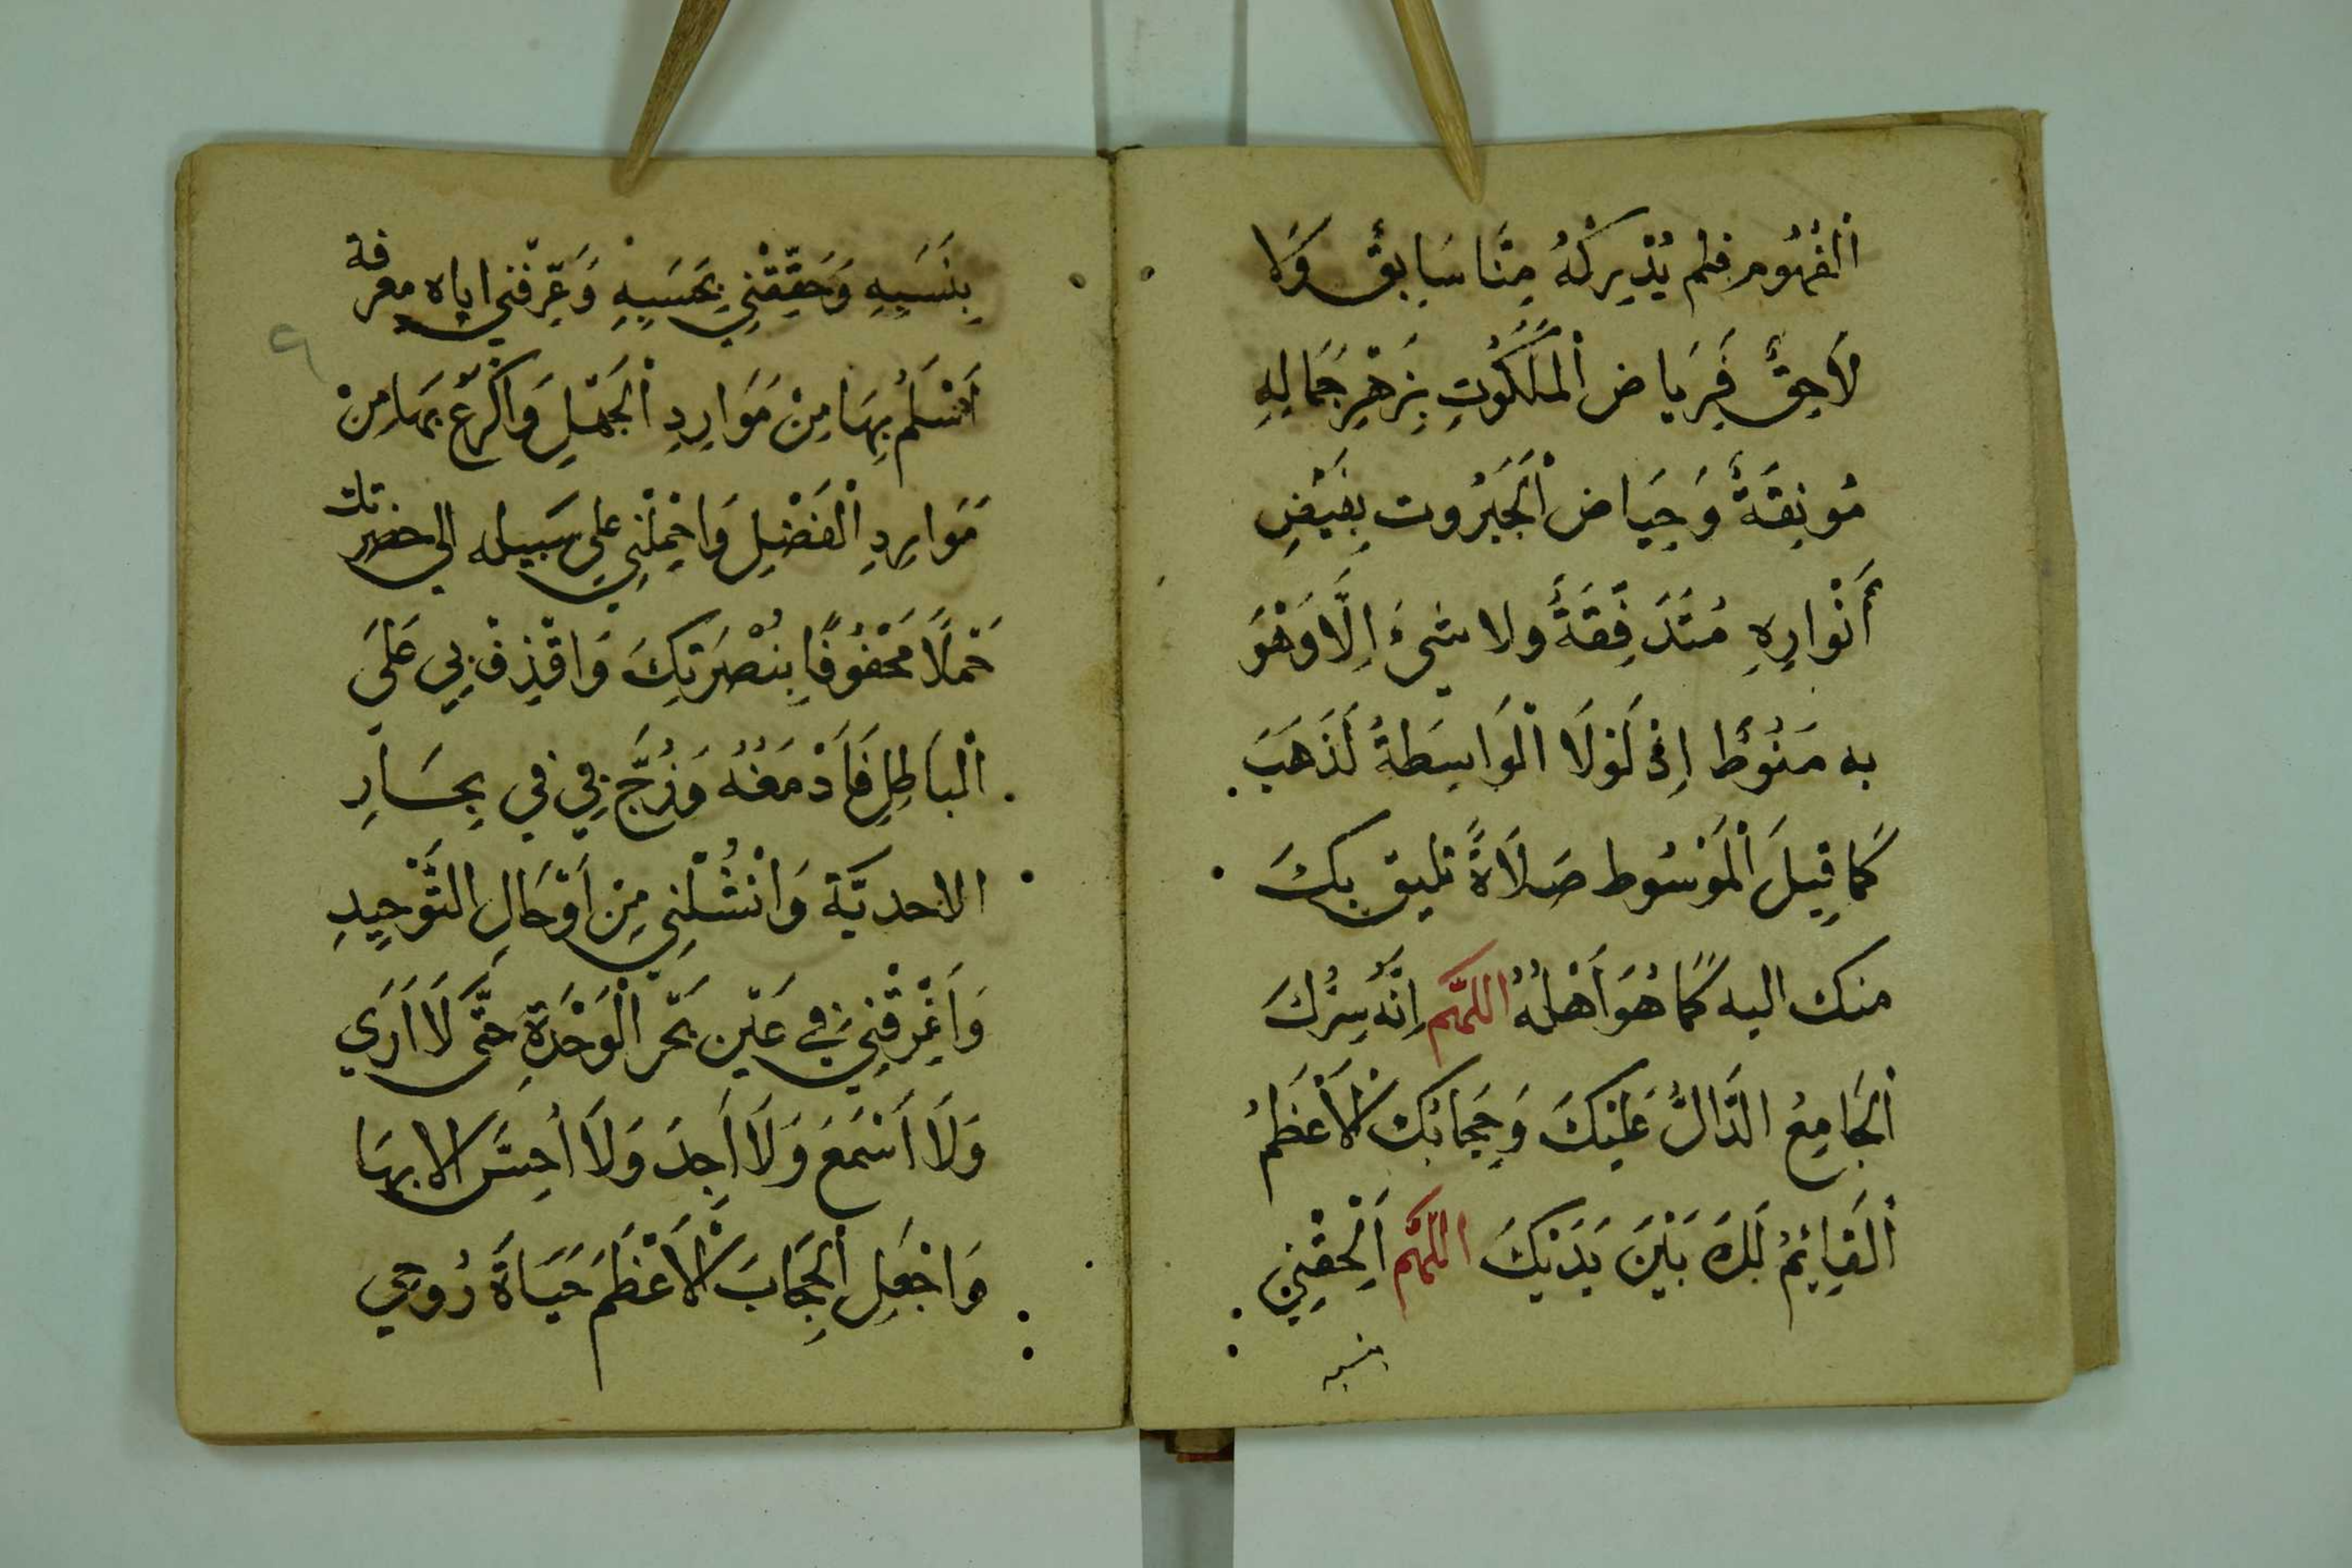 اَلْفُهُوم فلم يُدْرِكْهُ مِنَّا سَابِقٌ وَلَا
لَاحِقٌ فَرِيَاض الْمَلَكُوتِ بِزَهْرِ جَمَالِهِ
مُونِقَةٌ وَحِيَاض الْجَبَرُوت بِفَيْضِ
أَنْوارِهِ مُتَدَفِّقَةٌ ولا شَيْءَ اِلَّا وَهُوَ
به مَنُوطٌ اِذْ لَوْلَا الْوَاسِطَةُ لَذَهَبَ
كَمَا قِيلَ الْمَوْسُوط صَلَاةً تليق بِكَ
منك اليه كَمَا هُوَ أَهْلُهُ اللهُمَّ اِنَّهُ سِرُّكَ
الْجَامِعُ الدَّالُّ عَلَيْكَ وَحِجَابُكَ الْأَعْظَمُ
الْقَايِمُ لَكَ بَيْنَ يَدَيْكَ اللّهُمَّ اَلْحِقْنِي
بنسبه
بِنَسَبِهِ وَحَقِّقْنِي بِحَسَبِهِ وَعَرِّفْنِي اياه معرفة
اَسْلَمُ بِهَا مِنْ مَوَارِدِ الْجَهْلِ وَاَكْرَعُ بِهَا مِنْ
مَوَارِدِ الْفَضْلِ وَاحْمِلْنِي علي سَبيله الي حضرتك
حَمْلًا مَحْفُوفًا بِنُصْرَتِكَ وَاقْذِفْ بِي عَلَي
الْبَاطِلِ فَاَدْمَغْهُ وَزُجَّ بِي فِي بِحَارِ
الاحديّة وَانْشُلْنِي مِنْ اَوْحَالِ التَّوْحِيدِ
وَاَغْرِقْنِي فِي عَيْنِ بَحْرِ الْوَحْدَةِ حَتَّى لَا اَرَي
وَلَا اَسْمَعَ وَلَا اَجِدَ وَلَا اُحِسَّ الا بِهَا
وَاجْعَلِ الْحِجَابَ الْاَعْظَمَ حَيَاةَ رُوحِي